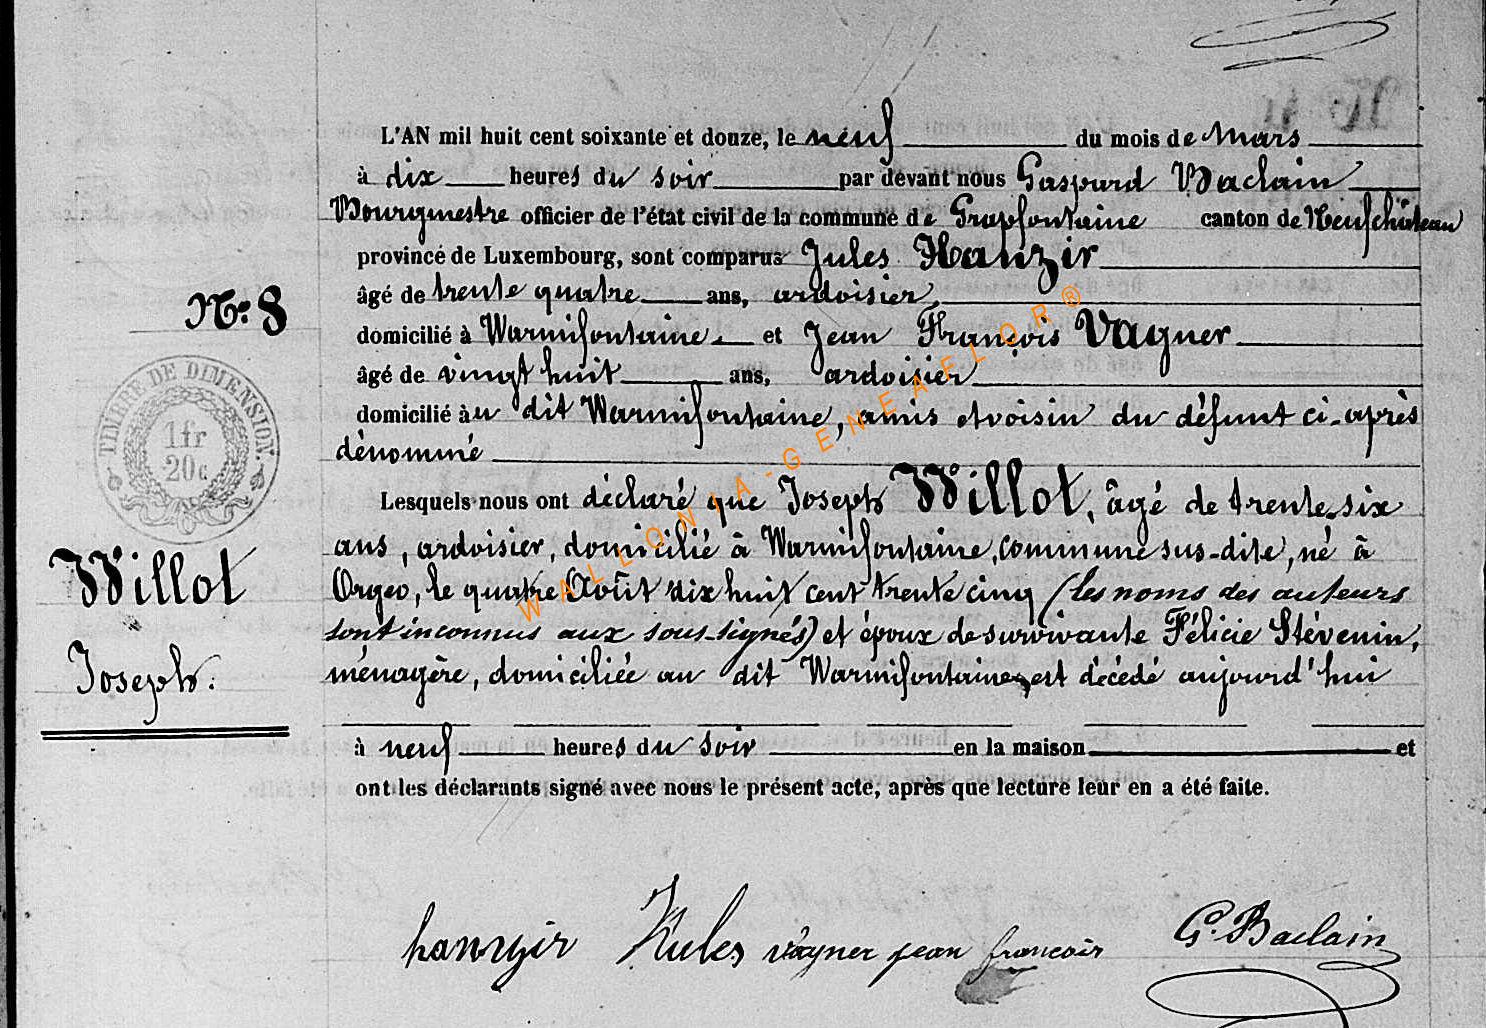 L'AN mil huit cent soixante et douze, le neuf du mois de Mars
à dix heures du soir par devant nous Gaspard Baclain
Bourgmestre officier de l'état civil de la commune de Grapfontaine canton de Neufchâteau
province de Luxembourg, sont comparus Jules Hanzir
N° 8
âgé de trente quatre ans, ardoisier,
domicilié à Warmifontaine et Jean François Vagner
âgé de vingt huit ans, ardoisier
domicilié àu dit Warmifontaine, amis et voisin du défunt ci-après
dénommé
TIMBRE DE DIMENSION.
1fr
20c
Lesquels nous ont déclaré que Joseph Willot, âgé de trente-six
ans, ardoisier, domicilié à Warmifontaine, commune sus-dite, né à
Willot
Joseph.
Orgeo, le quatre Août dix huit cent trente cinq (les noms des auteurs
sont inconnus aux sous-signés) et époux de survivante Félicie Stévenin,
ménagère, domiciliée au dit Warmifontaine, est décédé aujourd'hui
à neuf heures du soir en la maison et
ont les déclarants signé avec nous le présent acte, après que lecture leur en a été faite.
Jules vagner jean francois G. Baclain
WALLONIA-GENEAFLOR®